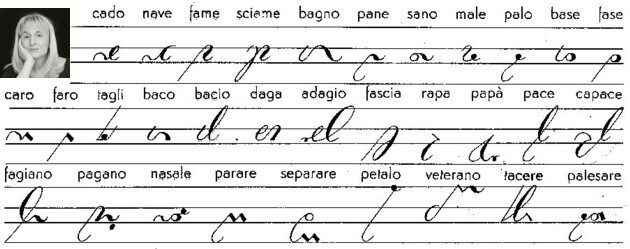 cado nave fame sciame bagno pane sano male palo base fase
caro faro tagli baco bacio daga adagio fascia rapa papà pace capace
fagiano pagano nasale parare separare petalo veterano tacere palesare